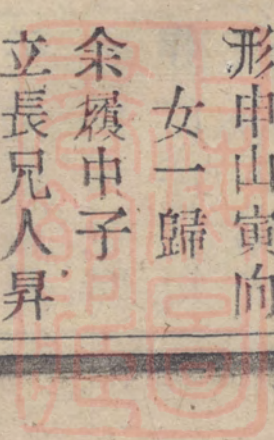 形申山寅向
女一歸
余履中子
立長兄人昇